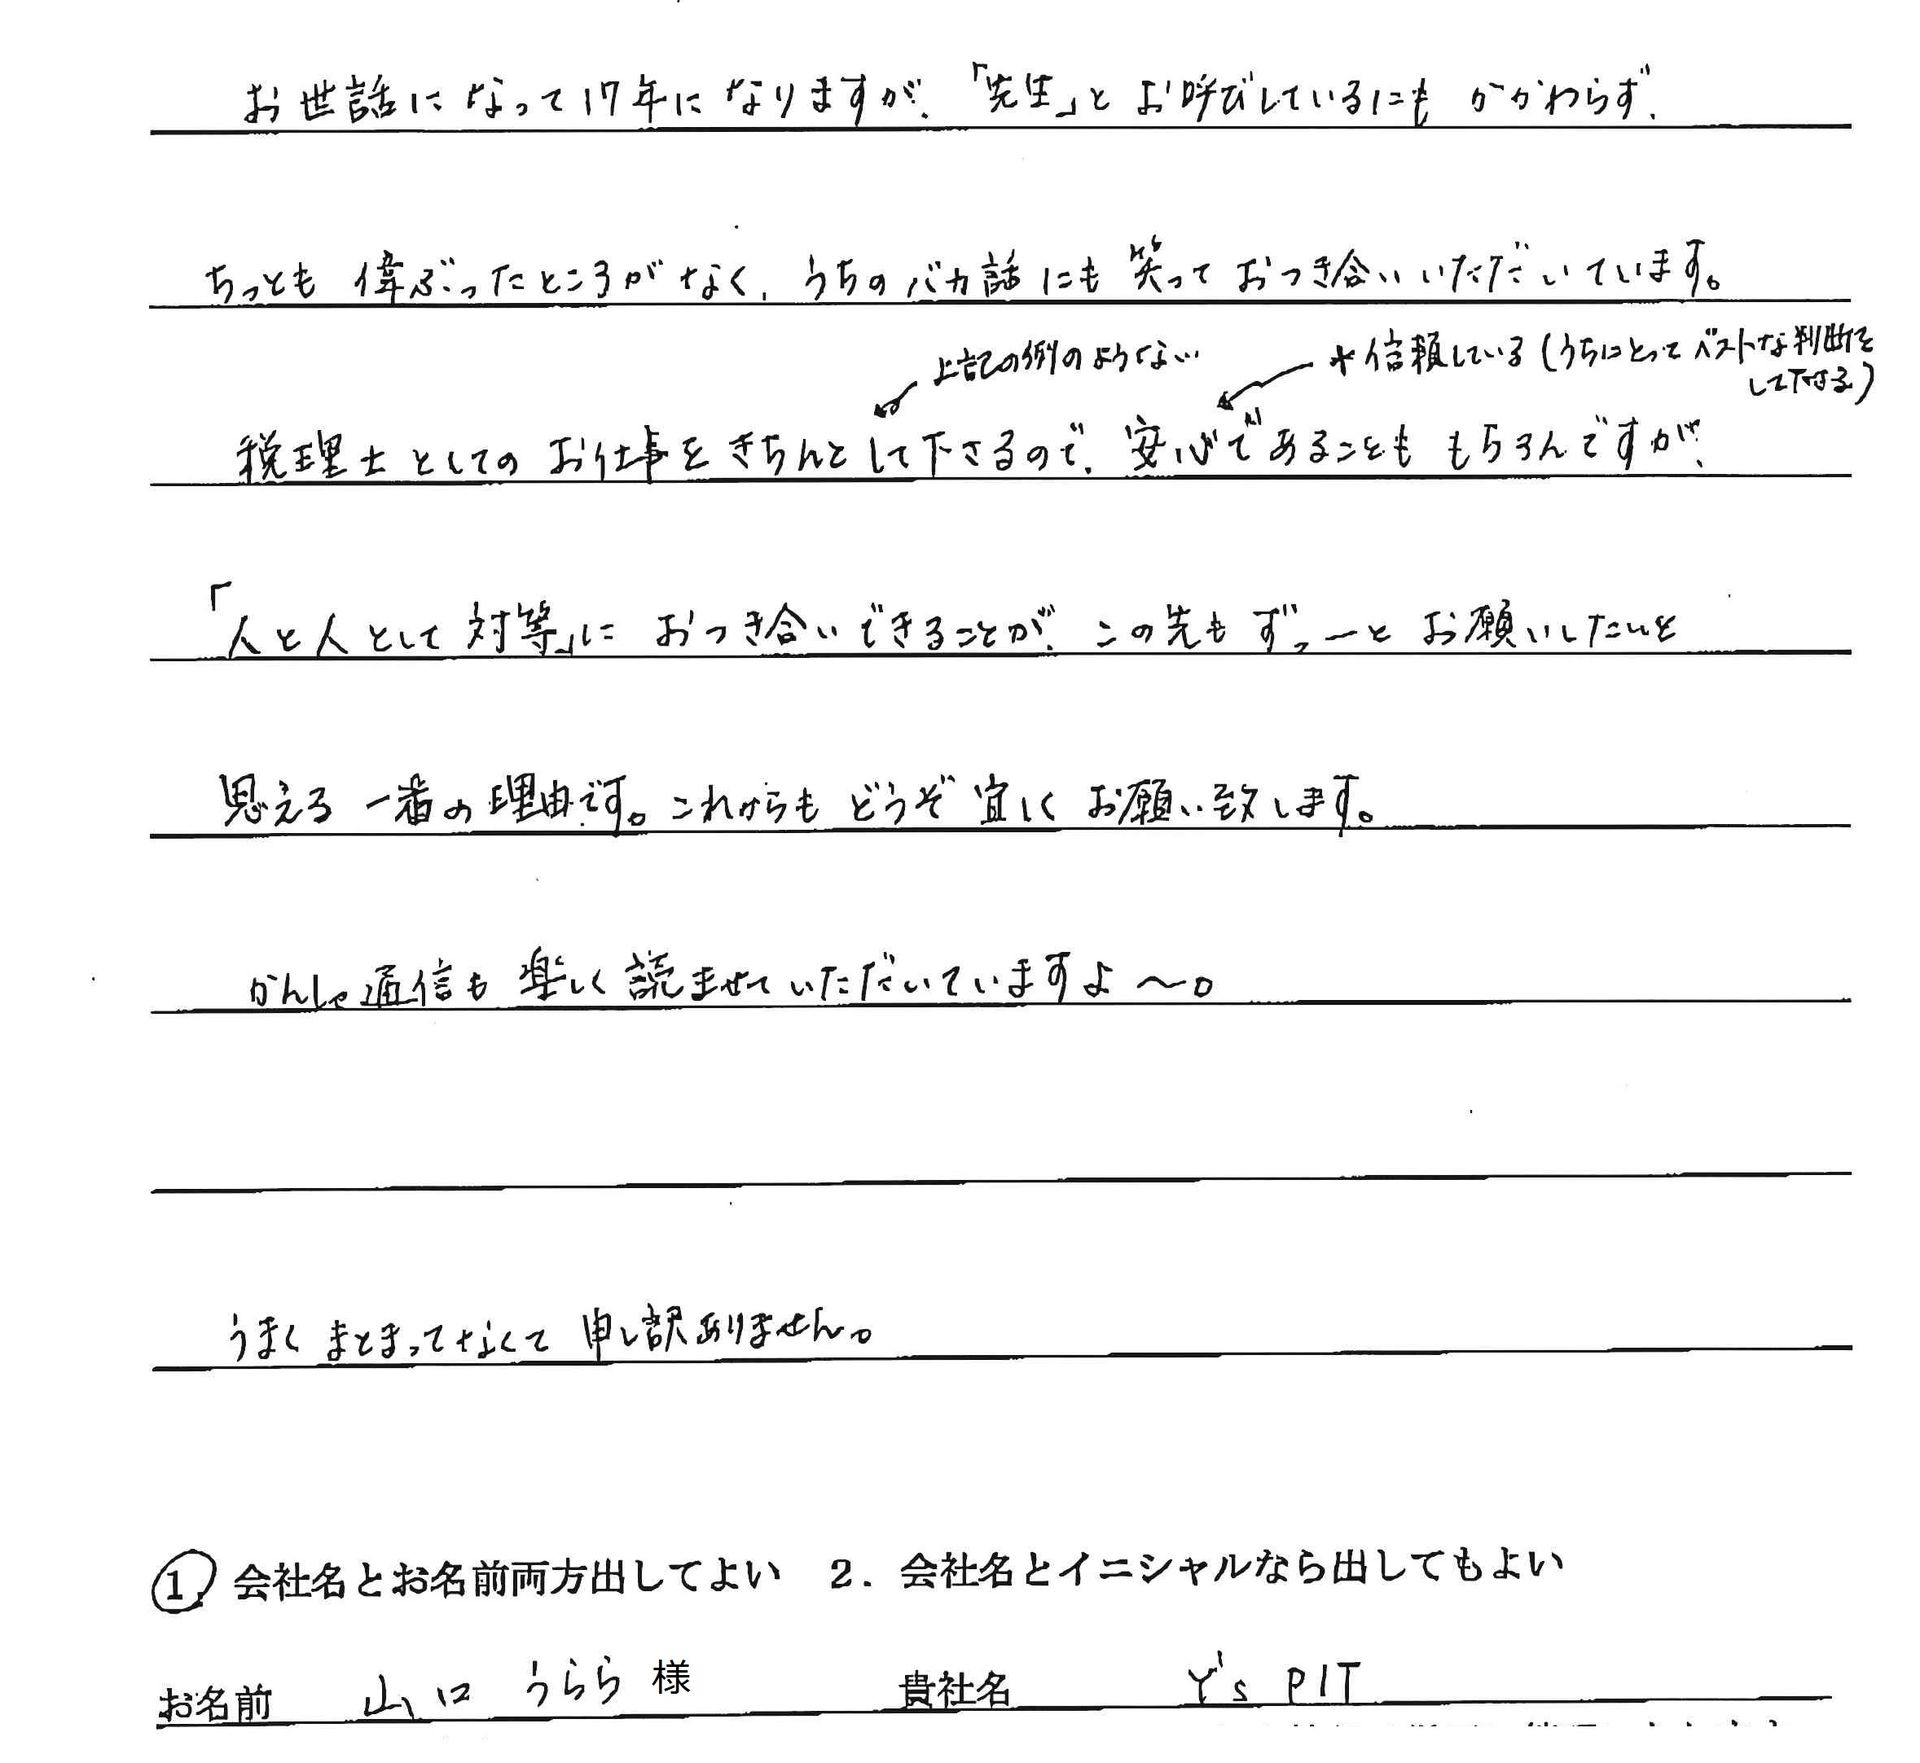 お世話になって17年になりますが、「先生」とお呼びしているにもかかわらず、
ちっとも偉ぶったところがなく、うちのバカ話にも笑っておつき合いいただいています。
上記の例のような…
*信頼している(うちにとってベストな判断を
して下さる)
税理士としてのお仕事をきちんとして下さるので、安心であることももちろんですが、
「人と人として対等」におつき合いできることが、この先もずっーとお願いしたいと
思える一番の理由です。これからもどうぞ宜しくお願い致します。
かんしゃ通信も楽しく読ませていただいていますよ〜。
うまくまとまってなくて申し訳ありません。
1. 会社名とお名前両方出してよい 2. 会社名とイニシャルなら出してもよい
お名前 山口 うらら 様 貴社名 Y's PIT